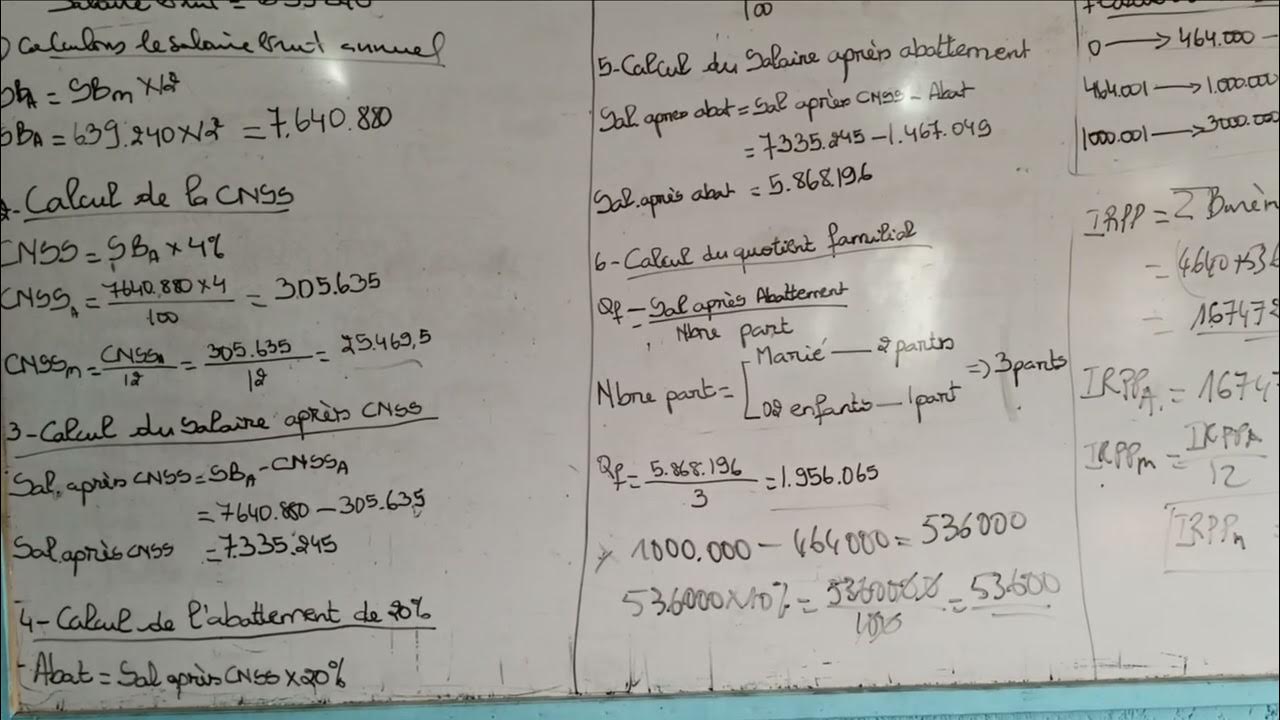 ) Calculons le salaire brut annuel
SB_A = SBm × 12
SB_A = 639.240 × 12 = 7.640.880
2-Calcul de la CNSS
CNSS = SB_A × 4%
CNSS_A = 7640.880 × 4 / 100 = 305.635
CNSSm = CNSS_A / 12 = 305.635 / 12 = 25.469,5
3-Calcul du salaire après CNSS
Sal. après CNSS = SB_A - CNSS_A
= 7640.880 - 305.635
Sal après CNSS = 7.335.245
4-Calcul de l'abattement de 20%
- Abat = Sal après CNSS × 20%
100
5-Calcul du Salaire après abattement
Sal après abat = Sal après CNSS - Abat
= 7335.245 - 1.467.049
Sal. après abat = 5.868.196
6-Calcul du quotient familial
Qf = Sal après Abattement / Nbre part
Nbre part = [ Marié — 2 parts
02 enfants — 1 part => 3 parts
Qf = 5.868.196 / 3 = 1.956.065
1000.000 - 464000 = 536000
536000 × 10% = 53600
0 → 464.000 -
464.001 → 1.000.000
1000.001 → 3000.000
IRPP = Σ Barèm
= (4640 + 536
= 167472
IRPP_A = 16747
IRPPm = IRPP_A / 12
IRPP